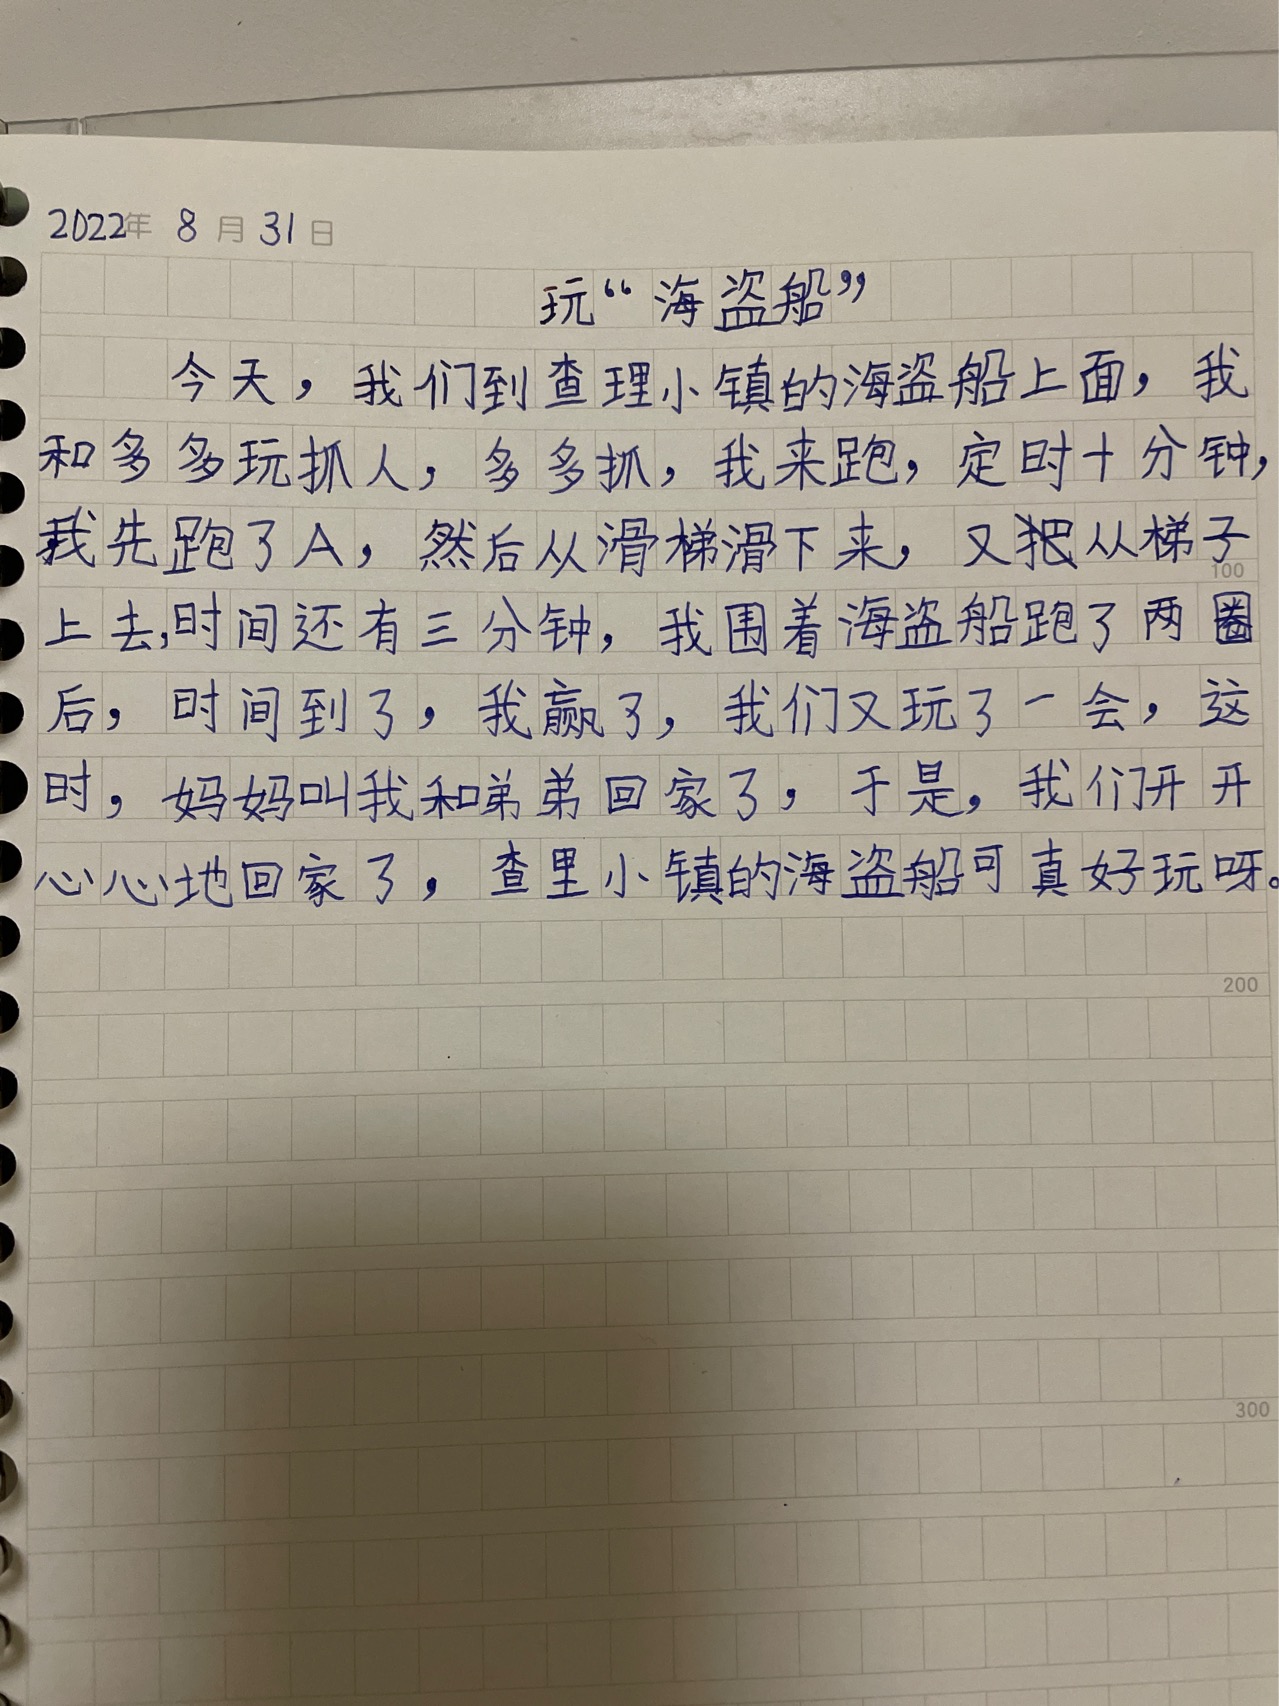 2022年 8月31日
玩“海盗船”
今天，我们到查理小镇的海盗船上面，我
和多多玩抓人，多多抓，我来跑，定时十分钟，
我先跑了A，然后从滑梯滑下来，又把从梯子
上去，时间还有三分钟，我围着海盗船跑了两圈
后，时间到了，我赢了，我们又玩了一会，这
时，妈妈叫我和弟弟回家了，于是，我们开开
心心地回家了，查里小镇的海盗船可真好玩呀。
100
200
300